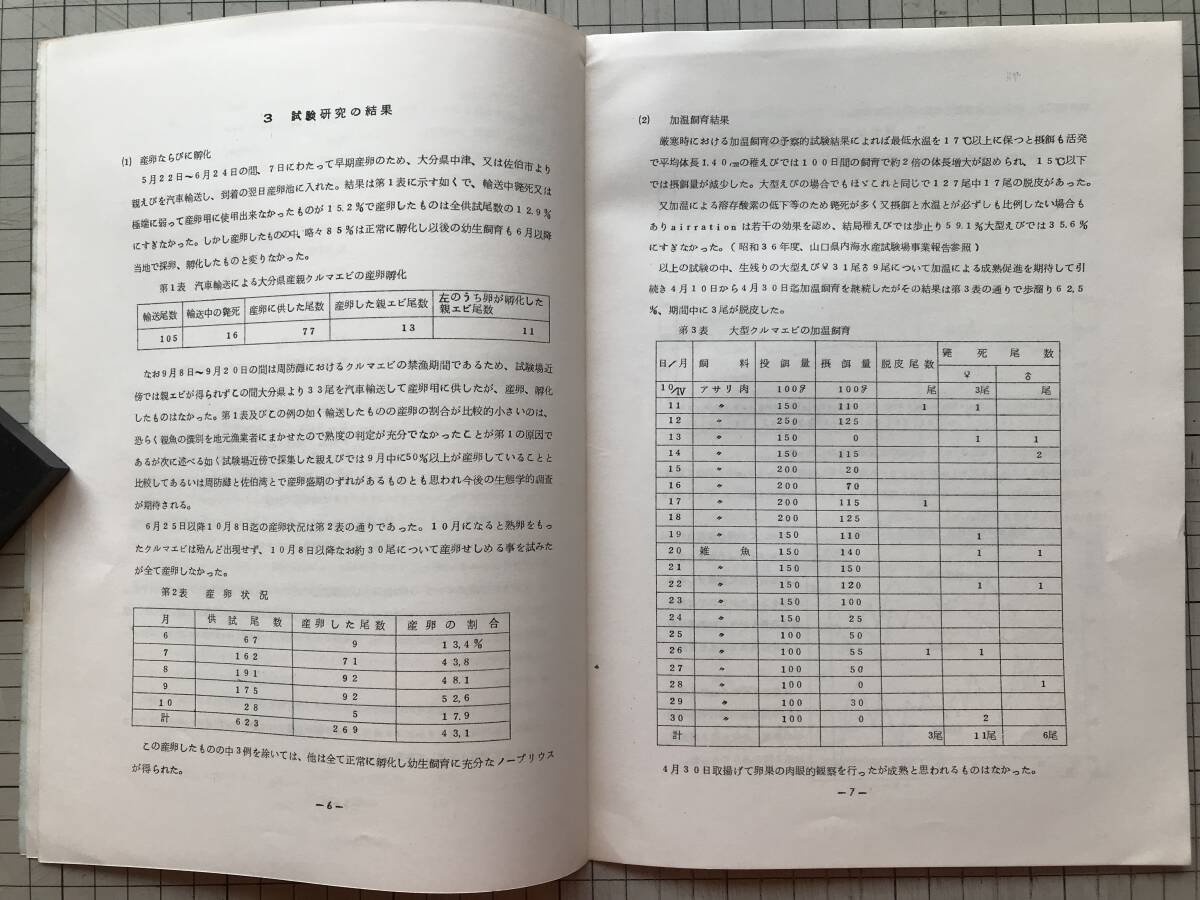 3 試験研究の結果
(1) 産卵ならびに孵化
5月22日~6月24日の間、7日にわたって早期産卵のため、大分県中津、又は佐伯市より
親えびを汽車輸送し、到着の翌日産卵池に入れた。結果は第1表に示す如くで、輸送中斃死又は
極端に弱って産卵用に使用出来なかったものが15.2%で産卵したものは全供試尾数の12.9%
にすぎなかった。しかし産卵したものの中、略々85%は正常に孵化し以後の幼生飼育も6月以降
当地で採卵、孵化したものと変りなかった。
第1表 汽車輸送による大分県産親クルマエビの産卵孵化
輸送尾数 輸送中の斃死 産卵に供した尾数 産卵した親エビ尾数 左のうち卵が孵化した
親エビ尾数
105 16 77 13 11
なお9月8日~9月20日の間は周防灘におけるクルマエビの禁漁期間であるため、試験場近
傍では親エビが得られずこの間大分県より33尾を汽車輸送して産卵用に供したが、産卵、孵化
したものはなかった。第1表及びこの例の如く輸送したものの産卵の割合が比較的小さいのは、
恐らく親魚の撰別を地元漁業者にまかせたので熟度の判定が充分でなかったことが第1の原因で
あるが次に述べる如く試験場近傍で採集した親えびでは9月中に50%以上が産卵していることと
比較してあるいは周防灘と佐伯湾とで産卵盛期のずれがあるものとも思われ今後の生態学的調査
が期待される。
6月25日以降10月8日迄の産卵状況は第2表の通りであった。10月になると熟卵をもっ
たクルマエビは殆んど出現せず、10月8日以降なお約30尾について産卵せしめる事を試みた
が全て産卵しなかった。
第2表 産卵状況
月 供試尾数 産卵した尾数 産卵の割合
6 67 9 13,4%
7 162 71 43,8
8 191 92 48.1
9 175 92 52,6
10 28 5 17.9
計 623 269 43,1
この産卵したものの中3例を除いては、他は全て正常に孵化し幼生飼育に充分なノープリウス
が得られた。
-6-
(2) 加温飼育結果
厳寒時における加温飼育の予察的試験結果によれば最低水温を17℃以上に保つと摂餌も活発
で平均体長1.40cmの稚えびでは100日間の飼育で約2倍の体長増大が認められ、15℃以下
では摂餌量が減少した。大型えびの場合でもほゞこれと同じで127尾中17尾の脱皮があった。
又加温による溶存酸素の低下等のため斃死が多く又摂餌と水温とが必ずしも比例しない場合も
ありairrationは若干の効果を認め、結局稚えびでは歩止り59.1%大型えびでは35.6%
にすぎなかった。(昭和36年度、山口県内海水産試験場事業報告参照)
以上の試験の中、生残りの大型えび♀31尾♂9尾について加温による成熟促進を期待して引
続き4月10日から4月30日迄加温飼育を継続したがその結果は第3表の通りで歩溜り62,5
%、期間中に3尾が脱皮した。
第3表 大型クルマエビの加温飼育
日/月 飼料 投餌量 摂餌量 脱皮尾数 斃死尾数
♀ ♂
10/Ⅳ アサリ肉 100g 100g 尾 3尾 尾
11 〃 150 110 1 1
12 〃 250 125
13 〃 150 0 1 1
14 〃 150 115 2
15 〃 200 20
16 〃 200 70
17 〃 200 115 1
18 〃 200 125
19 〃 150 110 1
20 雑魚 150 140 1 1
21 〃 150 150
22 〃 150 120 1 1
23 〃 150 100
24 〃 150 25
25 〃 100 50
26 〃 100 55 1 1
27 〃 100 50
28 〃 100 0 1
29 〃 100 30
30 〃 100 0 2
計 3尾 11尾 6尾
4月30日取揚げて卵巣の肉眼的観察を行ったが成熟と思われるものはなかった。
-7-